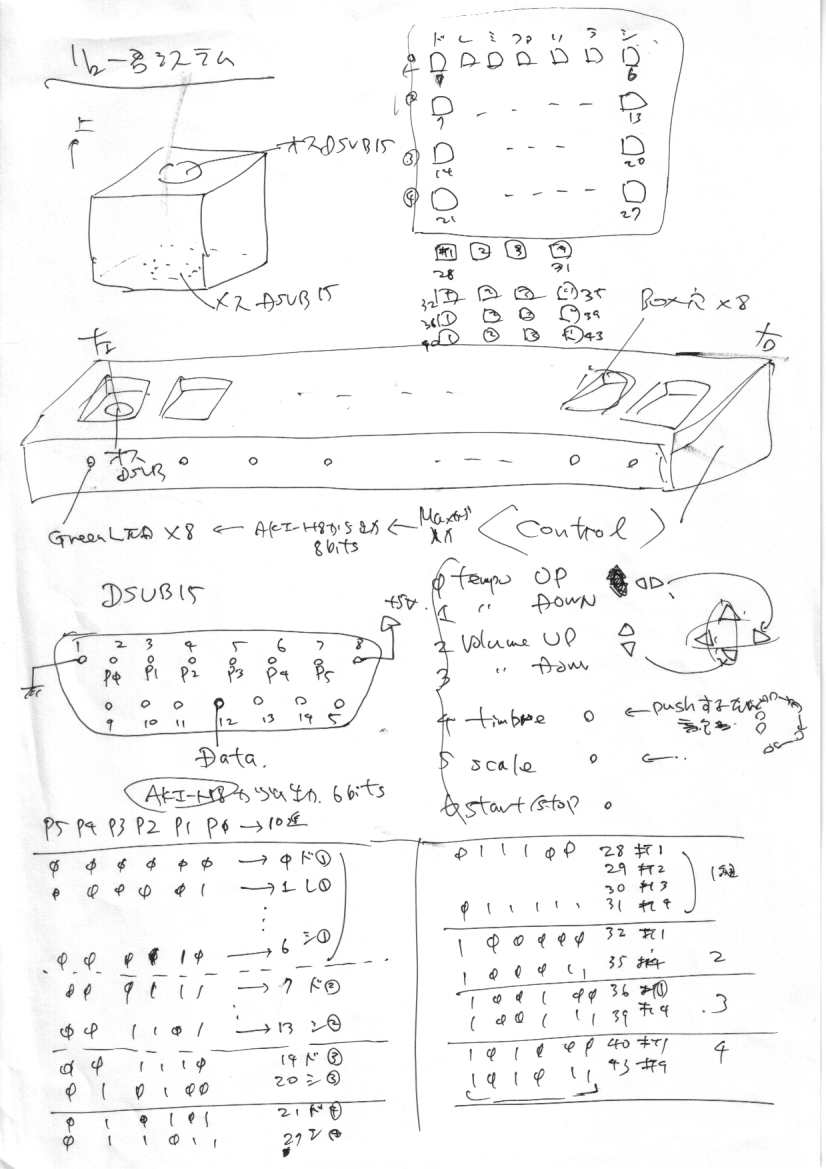 ド レ ミ ファ ソ ラ シ
0 6
② 7 13
③ 14 20
④ 21 27
上
オスDSUB15
#1 2 3 4
28 31
メス DSUB15
32 1 2 2 35
36 1 2 3 39
40 1 2 3 43
BOX穴 ×8
オス
DSUB
Green LED ×8 ← AKI-H8から出力 ←
8bits
Control
DSUB15
+5V
1 2 3 4 5 6 7 8
Pφ P1 P2 P3 P4 P5
9 10 11 12 13 14 5
Data.
φ tempo UP
1 〃 DOWN
2 Volume UP
3 〃 Down
4 timbre ← push
5 scale ←
6 start/stop
AKI-H8から出力. 6bits
P5 P4 P3 P2 P1 Pφ → 10進
φ φ φ φ φ φ → φ ド①
φ φ φ φ φ 1 → 1 レ①
φ φ φ φ 1 φ → 6 シ①
φφ φ 1 1 1 → 7 ド②
φφ 1 1 φ 1 → 13 シ②
φφ 1 1 1 φ 14 ド③
φ 1 φ 1 φφ 20 シ③
φ 1 φ 1 φ1 21 ド④
φ 1 1 φ 1 1 27 シ④
φ 1 1 1 φφ 28 #1
29 #2
30 #3
φ 1 1 1 1 1 31 #4
1組
1 φ φ φ φ φ 32 #1
1 φ φ φ 1 1 35 #4
2
1 φ φ 1 φφ 36 #1
1 φ φ 1 1 1 39 #4
3
1 φ 1 φ φφ 40 #1
1 φ 1 φ 1 1 43 #4
4